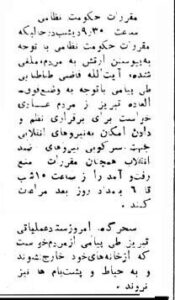 مقررات حکومت نظامی
ساعت ۹٫۳۰ دیشب درحالیکه
مقررات حکومت نظامی با توجه
به پیوستن ارتش به مردم، ملغی
شده، آیت‌الله قاضی طباطبایی
طی پیامی باتوجه به وضع فوق
العاده تبریز از مردم عساری
خواست برای برقراری نظم و
دادن امکان به‌نیروهای انقلابی
جهت سرکوبی نیروهای ضد
انقلاب همچنان مقررات منع
رفت‌و آمد را از ساعت ۱۰ شب
تا ۶ بامداد روز بعد مراعات
کنند.
سحرگاه امروز ستاد عملیاتی
تبریز طی پیامی از مردم خواست
که از خانه‌های خود خارج شوند
و به حیاط و پشت‌بام ها نیز
نروند.